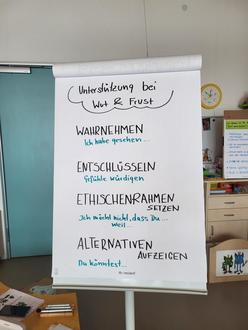 Unterstützung bei
Wut & Frust
WAHRNEHMEN
Ich habe gesehen...
ENTSCHLÜSSELN
Gefühle würdigen
ETHISCHENRAHMEN
SETZEN
Ich möcht nicht, dass Du...
weil...
ALTERNATIVEN
AUFZEIGEN
Du könntest...